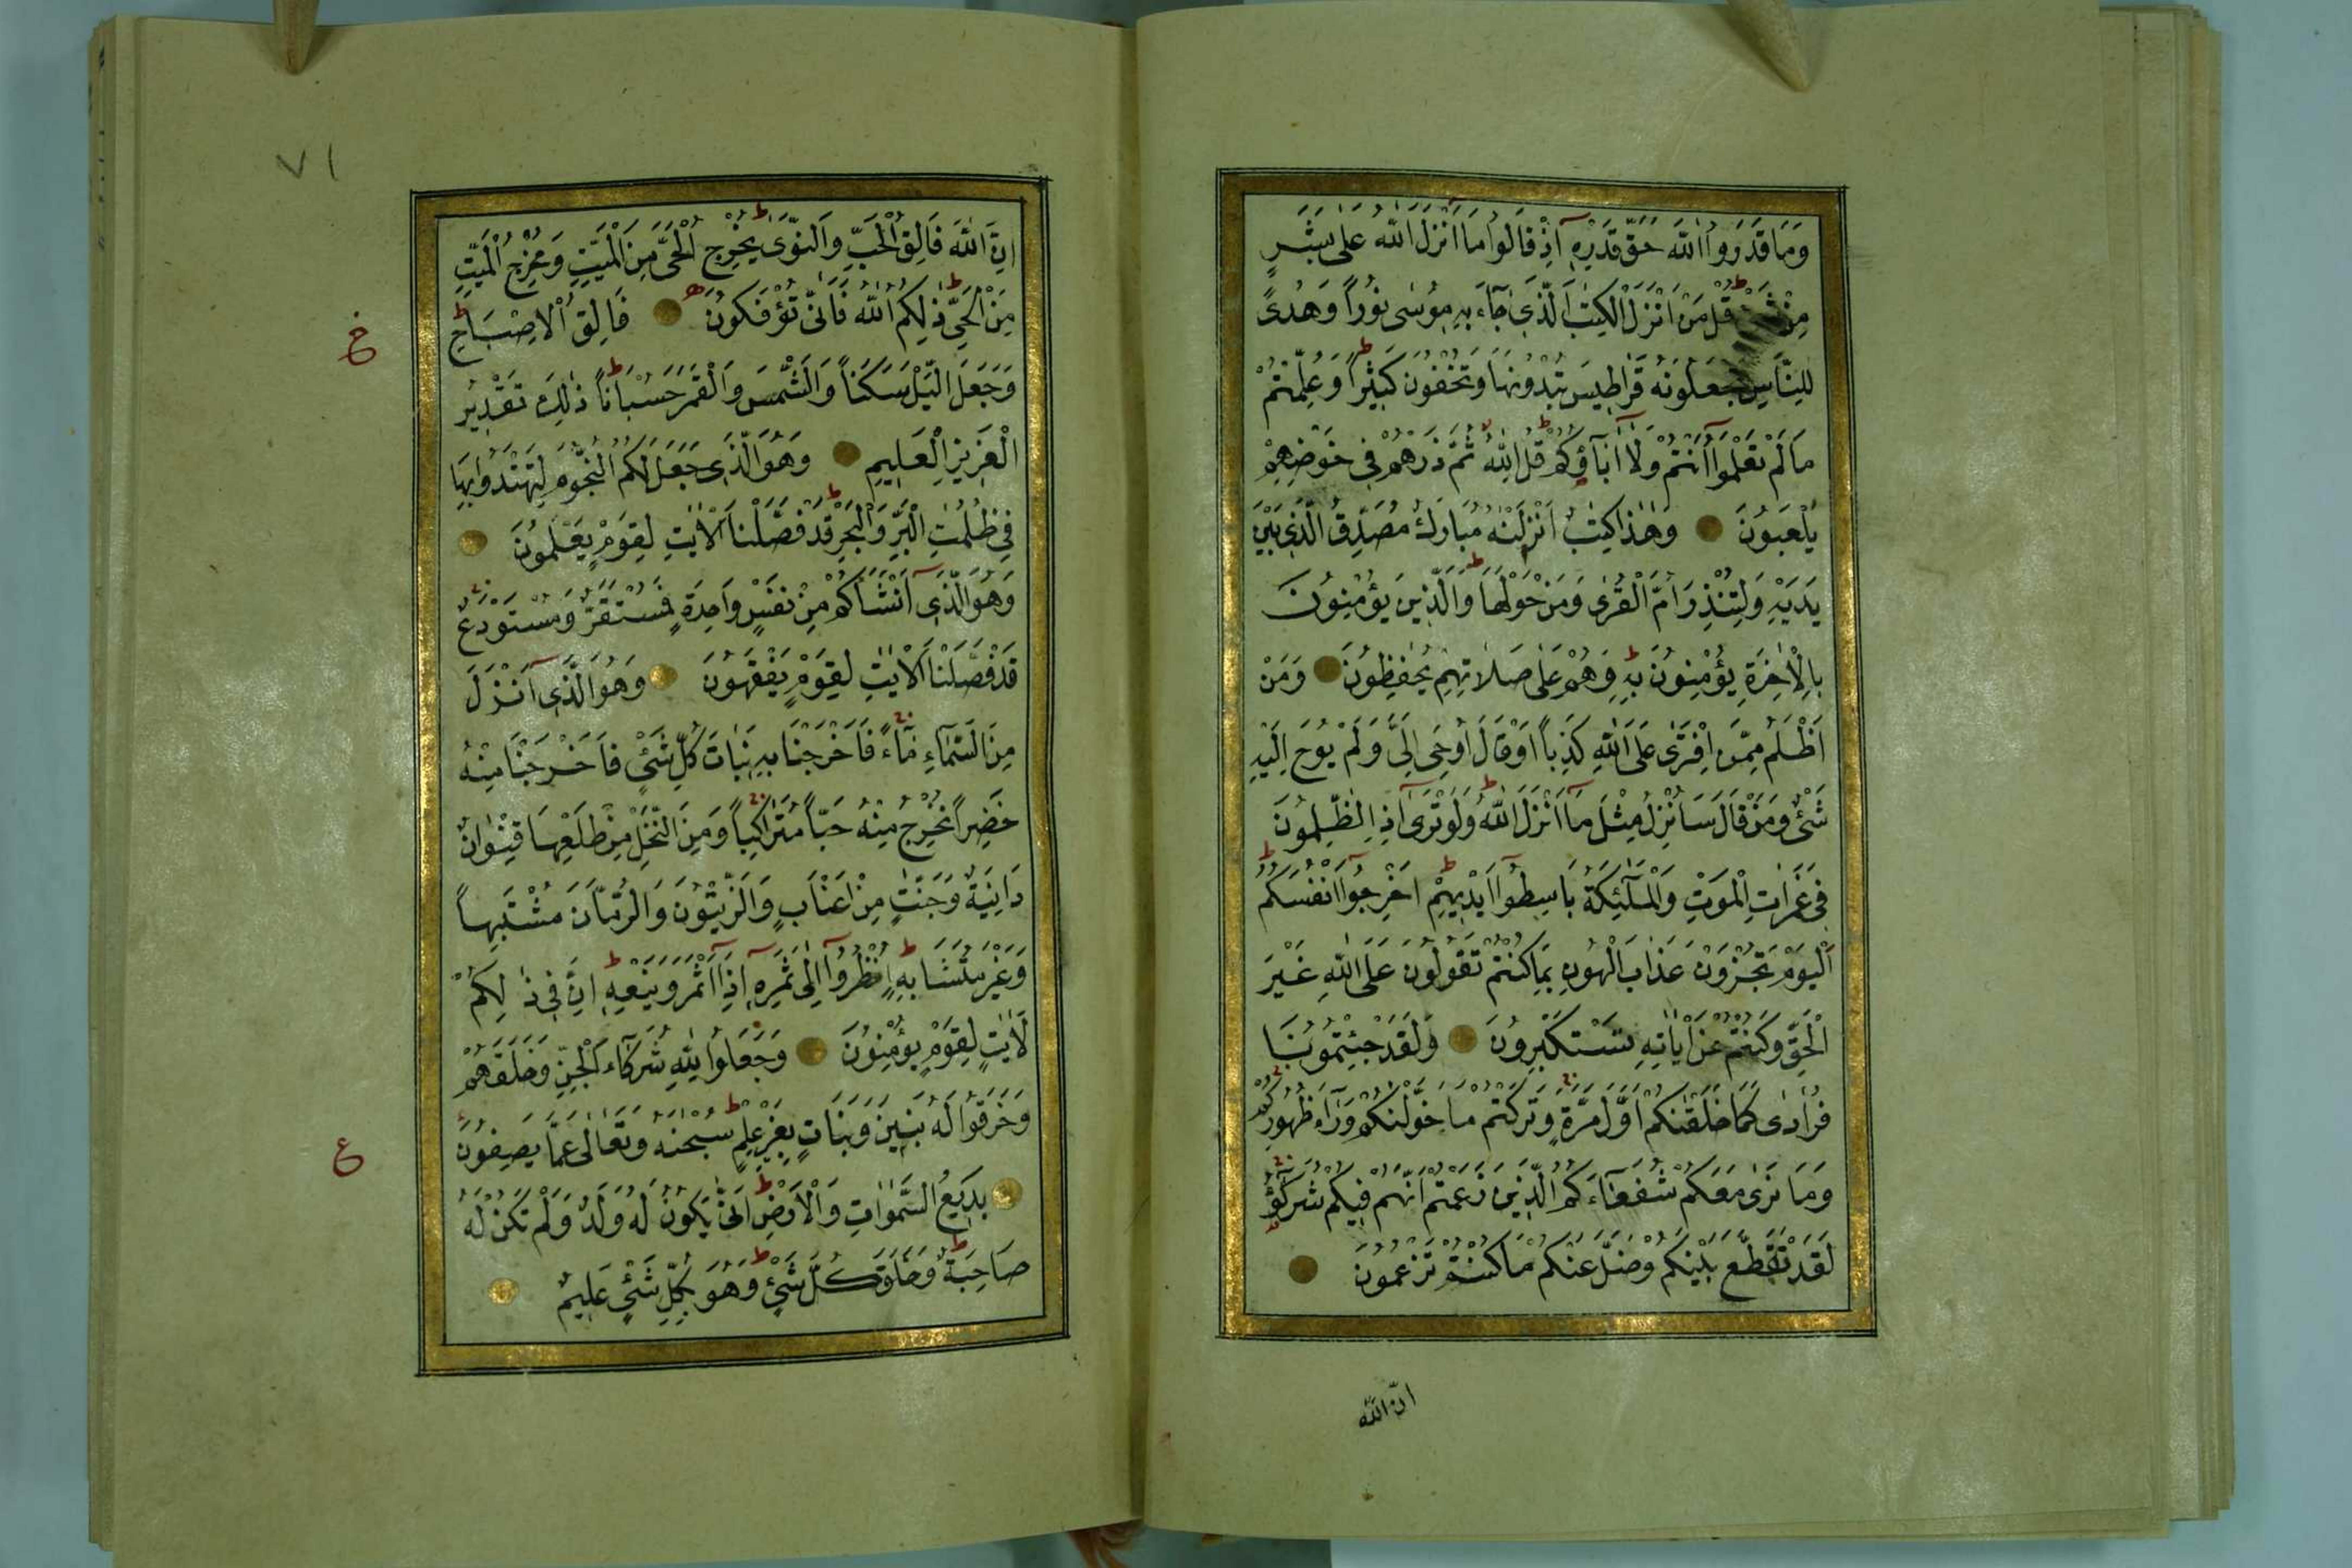 وَمَا قَدَرُوا اللّٰهَ حَقَّ قَدْرِهِ اِذْ قَالُوا مَا اَنْزَلَ اللّٰهُ عَلٰى بَشَرٍ
مِنْ قُلْ مَنْ اَنْزَلَ الْكِتٰبَ الَّذِى جَآءَ بِهِ مُوسٰى نُوراً وَهُدًى
لِلنَّاسِ تَجْعَلُونَهُ قَرَاطِيسَ تُبْدُونَهَا وَتُخْفُونَ كَثِيْراً وَعُلِّمْتُمْ
مَا لَمْ تَعْلَمُوا اَنْتُمْ وَلَا اٰبَآؤُكُمْ قُلِ اللّٰهُ ثُمَّ ذَرْهُمْ فِى خَوْضِهِمْ
يَلْعَبُونَ وَهٰذَا كِتٰبٌ اَنْزَلْنٰهُ مُبَارَكٌ مُصَدِّقُ الَّذِى بَيْنَ
يَدَيْهِ وَلِتُنْذِرَ اُمَّ الْقُرٰى وَمَنْ حَوْلَهَا وَالَّذِينَ يُؤْمِنُونَ
بِالْاٰخِرَةِ يُؤْمِنُونَ بِهِ وَهُمْ عَلٰى صَلَاتِهِمْ يُحٰفِظُونَ وَمَنْ
اَظْلَمُ مِمَّنِ افْتَرٰى عَلَى اللّٰهِ كَذِباً اَوْ قَالَ اُوحِىَ اِلَىَّ وَلَمْ يُوحَ اِلَيْهِ
شَىْءٌ وَمَنْ قَالَ سَاُنْزِلُ مِثْلَ مَا اَنْزَلَ اللّٰهُ وَلَوْ تَرٰى اِذِ الظّٰلِمُونَ
فِى غَمَرَاتِ الْمَوْتِ وَالْمَلٰٓئِكَةُ بَاسِطُوا اَيْدِيهِمْ اَخْرِجُوا اَنْفُسَكُمْ
اَلْيَوْمَ تُجْزَوْنَ عَذَابَ الْهُونِ بِمَا كُنْتُمْ تَقُولُونَ عَلَى اللّٰهِ غَيْرَ
الْحَقِّ وَكُنْتُمْ عَنْ اٰيَاتِهِ تَسْتَكْبِرُونَ وَلَقَدْ جِئْتُمُونَا
فُرَادٰى كَمَا خَلَقْنٰكُمْ اَوَّلَ مَرَّةٍ وَتَرَكْتُمْ مَا خَوَّلْنٰكُمْ وَرَآءَ ظُهُورِكُمْ
وَمَا نَرٰى مَعَكُمْ شُفَعَآءَكُمُ الَّذِينَ زَعَمْتُمْ اَنَّهُمْ فِيكُمْ شُرَكٰٓؤُا
لَقَدْ تَقَطَّعَ بَيْنَكُمْ وَضَلَّ عَنْكُمْ مَا كُنْتُمْ تَزْعُمُونَ
انّ الله
٧١
اِنَّ اللّٰهَ فَالِقُ الْحَبِّ وَالنَّوٰى يُخْرِجُ الْحَىَّ مِنَ الْمَيِّتِ وَمُخْرِجُ الْمَيِّتِ
مِنَ الْحَىِّ ذٰلِكُمُ اللّٰهُ فَاَنّٰى تُؤْفَكُونَ فَالِقُ الْاِصْبَاحِ
وَجَعَلَ الَّيْلَ سَكَناً وَالشَّمْسَ وَالْقَمَرَ حُسْبَاناً ذٰلِكَ تَقْدِيرُ
الْعَزِيزِ الْعَلِيمِ وَهُوَ الَّذِى جَعَلَ لَكُمُ النُّجُومَ لِتَهْتَدُوا بِهَا
فِى ظُلُمٰتِ الْبَرِّ وَالْبَحْرِ قَدْ فَصَّلْنَا الْاٰيٰتِ لِقَوْمٍ يَعْلَمُونَ
وَهُوَ الَّذِى اَنْشَاَكُمْ مِنْ نَفْسٍ وَاحِدَةٍ فَمُسْتَقَرٌّ وَمُسْتَوْدَعٌ
قَدْ فَصَّلْنَا الْاٰيٰتِ لِقَوْمٍ يَفْقَهُونَ وَهُوَ الَّذِى اَنْزَلَ
مِنَ السَّمَآءِ مَآءً فَاَخْرَجْنَا بِهِ نَبَاتَ كُلِّ شَىْءٍ فَاَخْرَجْنَا مِنْهُ
خَضِراً نُخْرِجُ مِنْهُ حَبّاً مُتَرَاكِباً وَمِنَ النَّخْلِ مِنْ طَلْعِهَا قِنْوَانٌ
دَانِيَةٌ وَجَنّٰتٍ مِنْ اَعْنَابٍ وَالزَّيْتُونَ وَالرُّمَّانَ مُشْتَبِهاً
وَغَيْرَ مُتَشَابِهٍ اُنْظُرُوا اِلٰى ثَمَرِهِ اِذَا اَثْمَرَ وَيَنْعِهِ اِنَّ فِى ذٰلِكُمْ
لَاٰيٰتٍ لِقَوْمٍ يُؤْمِنُونَ وَجَعَلُوا لِلّٰهِ شُرَكَآءَ الْجِنَّ وَخَلَقَهُمْ
وَخَرَقُوا لَهُ بَنِينَ وَبَنَاتٍ بِغَيْرِ عِلْمٍ سُبْحٰنَهُ وَتَعَالٰى عَمَّا يَصِفُونَ
ع
بَدِيعُ السَّمٰوَاتِ وَالْاَرْضِ اَنّٰى يَكُونُ لَهُ وَلَدٌ وَلَمْ تَكُنْ لَهُ
صَاحِبَةٌ وَخَلَقَ كُلَّ شَىْءٍ وَهُوَ بِكُلِّ شَىْءٍ عَلِيمٌ